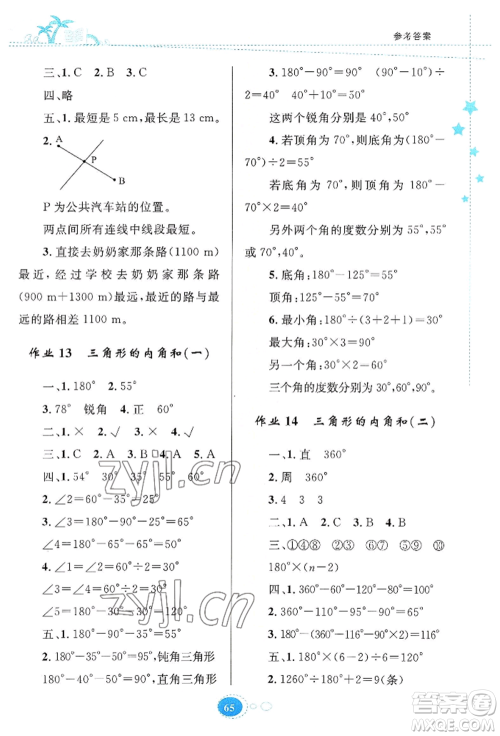 参考答案
三、1. C　2. B　3. A　4. C
四、略
五、1. 最短是 5 cm，最长是 13 cm。
2.
A
P
B
P 为公共汽车站的位置。
两点间所有连线中线段最短。
3. 直接去奶奶家那条路(1100 m)
最近，经过学校去奶奶家那条路
(900 m＋1300 m)最远，最近的路与最
远的路相差 1100 m。
作业 13　三角形的内角和(一)
一、1. 180°　2. 55°
3. 78°　锐角　4. 正　60°
二、1. ×　2. √　3. ×　4. √
三、1. C　2. C　3. B　4. A　5. A
四、1. 54°　30°　35°　55°　60°
2. ∠2＝60°－30°＝30°
∠1＝180°－90°－30°＝60°
3. ∠4＝180°－115°＝65°
∠3＝180°－55°－65°＝60°
4. ∠3＝180°－120°＝60°
∠5＝180°÷2＝90°
∠1＝90°－60°＝30°
五、1. 180°－90°＝90°
2. 180°－45°－30°　钝角三角形
180°－65°－25°　直角三角形
3. 180°－90°＝90°　(90°－10°)÷
2＝40°　90°－40°＝50°
这两个锐角分别是 40°，50°。
4. 若顶角为 70°，则底角为(180°－
70°)÷2＝55°
若底角为 70°，则顶角为 180°－
70°×2＝40°
另外两个角的度数分别是 55°，55°
或 70°，40°。
5. 底角：(180°－15°)÷3＝55°
顶角：55°＋15°＝70°
6. 最小角：180°÷(3＋2＋1)＝30°
最大角：30°×3＝90°
另一个角：30°×2＝60°
三个角的度数分别是 90°，60°，30°。
作业 14　三角形的内角和(二)
一、1. 直　360°
2. 周　360°
3. 4　3　3
二、1. A　2. C　3. B　4. C
三、①④⑧　②⑥⑦　③⑤⑨　⑩
180°×(n－2)
四、1. 360°－60°－120°－80°＝100°
2. 360°－90°－110°－72°＝88°
五、1. 180°×(6－2)÷6＝120°
2. 1260°÷180°＋2＝9(条)
65
zyjl.cn
zyjl.cn
作业精灵